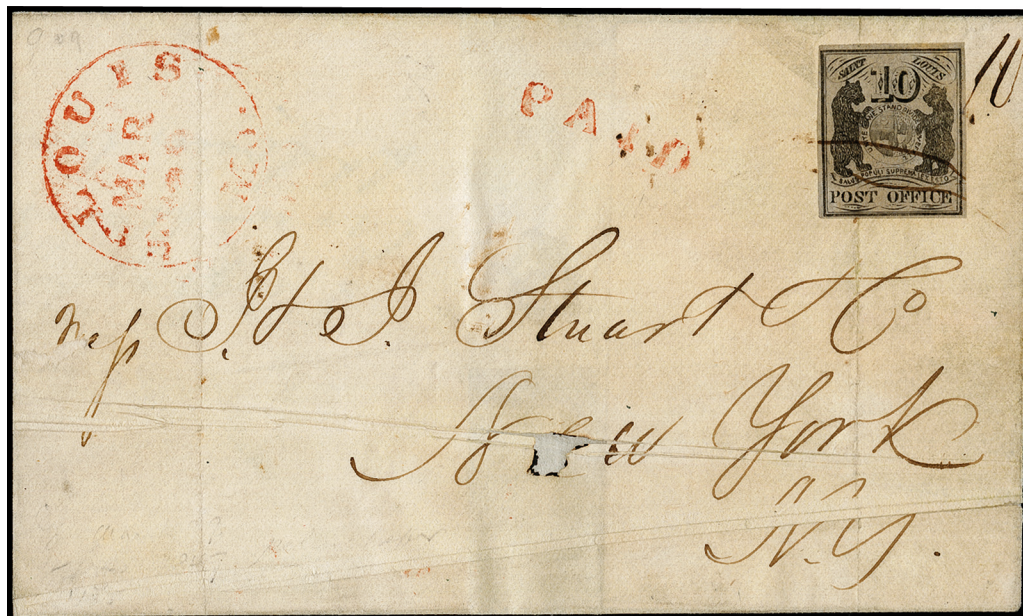 ST. LOUIS Mo.
MAR
PAID
10
SAINT LOUIS
10
POST OFFICE
Mess J. & J. Stuart & Co
New York
N.Y.